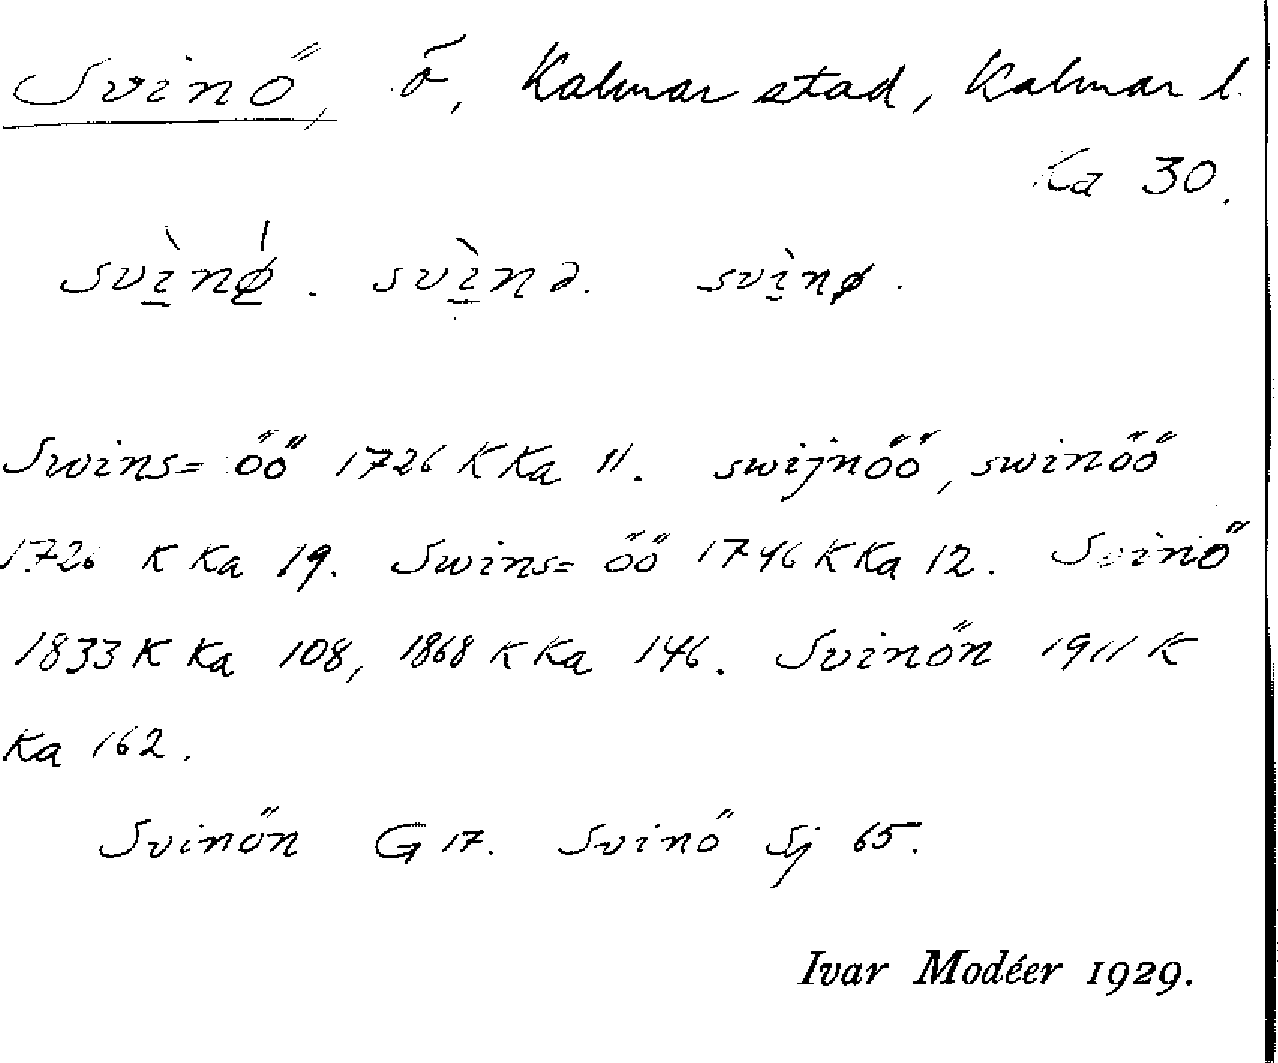 Svinö, ö, Kalmar stad, Kalmar l.
Ka 30.
svì̱nǿ̱. svì̱nə. svì̱nø.
Swins= öö 1726 K Ka 11. swijnöö, swinöö
1726 K Ka 19. Swins= öö 1746 K Ka 12. Svinö
1833 K Ka 108, 1868 K Ka 146. Svinön 1911 K
Ka 162.
Svinön G 17. Svinö Sj 65.
Ivar Modéer 1929.